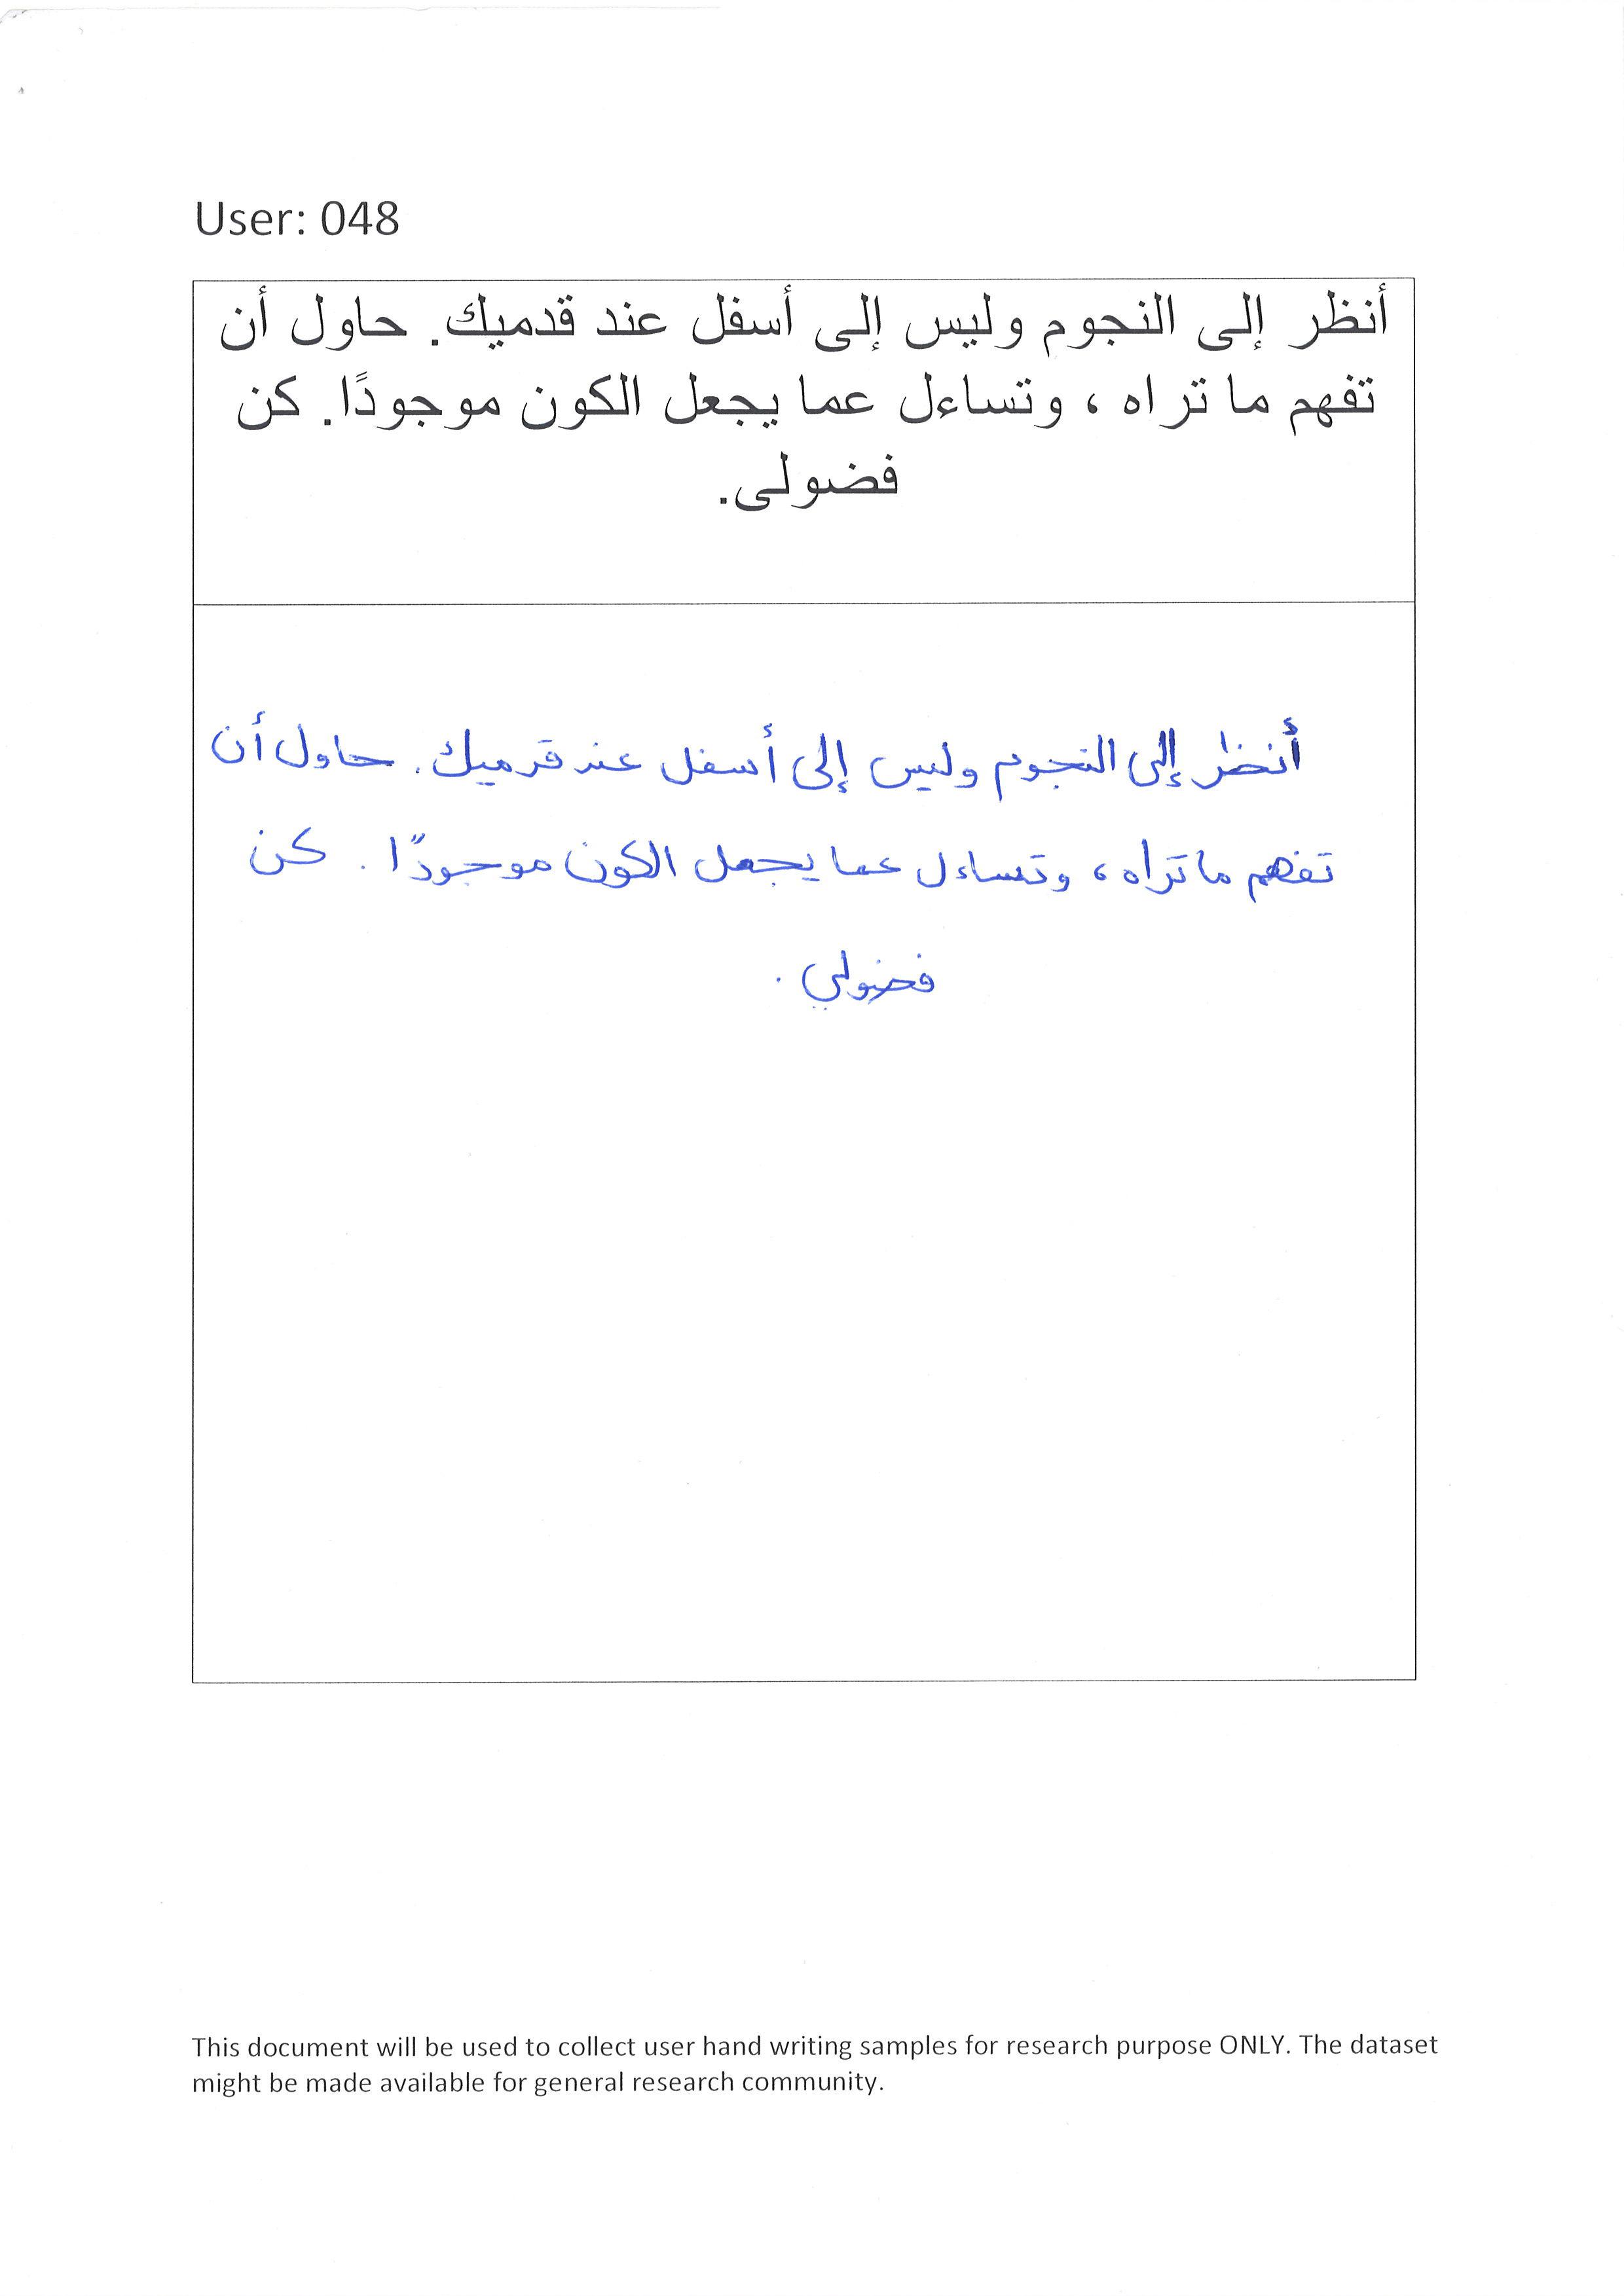 User: 048
أنظر إلى النجوم وليس إلى أسفل عند قدميك. حاول أن
تفهم ما تراه ، وتساءل عما يجعل الكون موجودًا. كن
فضولى.
أنظر إلى النجوم وليس إلى أسفل عند قدميك. حاول أن
تفهم ما تراه ، وتساءل عما يجعل الكون موجودًا . كن
فضولي .
This document will be used to collect user hand writing samples for research purpose ONLY. The dataset
might be made available for general research community.